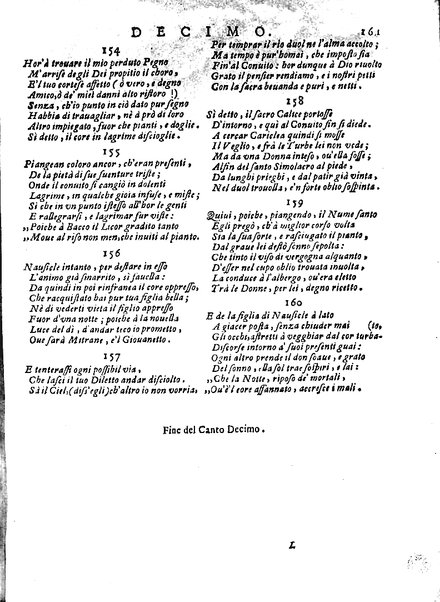 DECIMO. 161
154
Hor'à trouare il mio perduto Pegno
M'arrise degli Dei propitio il choro,
E'l tuo cortese affetto (ò vero, e degno
Amico, ò de' miei danni alto ristoro!)
Senza, ch'io punto in ciò dato pur segno
Habbia di trauagliar, nè à prò di loro
Altro impiegato, fuor che pianti, e doglie.
Sì detto, il core in lagrime discioglie.
155
Piangean coloro ancor, ch'eran presenti,
De la pietà di sue suenture triste;
Onde il conuito fi cangiò in dolenti
Lagrime, in qualche gioia infuse, e miste;
Sì che in vn punto istesso all'hor le genti
E rallegrarsi, e lagrimar fur viste:
„Poiche à Bacco il Licor gradito tanto
„Moue al riso non men, che inuiti al pianto.
156
Nausicle intanto, per destare in esso
L'animo già smarrito, sì fauella:
Da quindi in poi rinfranca il core oppresso,
Che racquistato hai pur tua figlia bella;
Nè di vederti vieta il figlio appresso
Fuor d'vna notte; poiche à la nouella
Luce del dì, d'andar teco io prometto,
Oue sarà Mitrane, e'l Giouanetto.
157
E tenterassi ogni possibil via,
Che lasci el tuo Diletto andar disciolto.
Sà il Ciel, (diss'egli) ch'altro io non vorria,
Per temprar il rio duol ne l'alma accolto;
Ma tempo è pur'homai, che imposto sia
Fin'al Conuito: hor dunque à Dio riuolto
Grato il pensier rendiamo, e i nostri petti
Con la sacra beuanda e puri, e netti.
158
Sì detto, il sacro Calice portosse
D'intorno, e qui al Conuito fin si diede.
A cercar Cariclea quindi si mosse
Il Veglio, e frà le Turbe lei non vede;
Ma da vna Donna inteso, ou'ella fosse;
Alfin del santo Simolacro al piede,
Da lunghi prieghi, e dal patir già vinta,
Nel duol trouolla, e'n forte oblio sospinta.
159
Quiui, poiche, piangendo, il Nume santo
Egli pregò, ch'à miglior corso volta
Sia la sua sorte, e rasciugato il pianto,
Dal graue lei destò sonno sepolta:
Che tinto il viso di vergogna alquanto,
D'esser nel cupo oblio trouata inuolta,
La conduce à l'albergo, ou'era eletto
Trà le Donne, per lei, degno ricetto.
160
E de la figlia di Nausicle à lato
A giacer posta, senza chiuder mai (to,
Gli occhi, astretti à vegghiar dal cor turba-
Discorse intorno à' suoi presenti guai:
Ogni altro prende il don soaue, e grato
Del sonno, ella sol tra sospiri, e lai:
„Che la Notte, riposo de' mortali,
„Ou'è l core affannato, accresce i mali.
Fine del Canto Decimo.
L